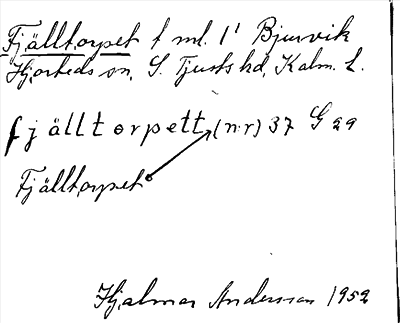 Fjälltorpet t ml. 1' Bjurvik
Hjorteds sn, S. Tjusts hd, Kalm. L.
fjälltorpett, (nr) 37 G 29
Fjälltorpet
Hjalmar Andersson 1952